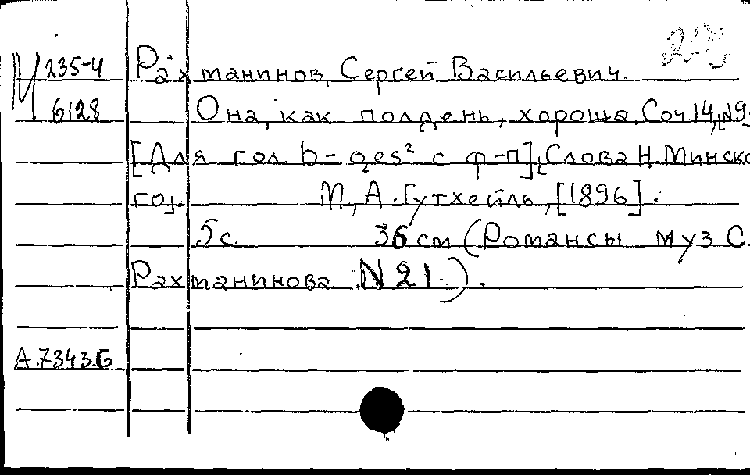 М 235-4 Рахманинов, Сергей Васильевич.
6128 Она, как полдень, хороша. Соч 14, №9.
[Для гол. b-ges² с ф-п]. Слова Н. Минско
го].   М., А. Гутхейль, [1896].
5 с.   36 см (Романсы муз С.
Рахманинова N 21.).
А.7343б